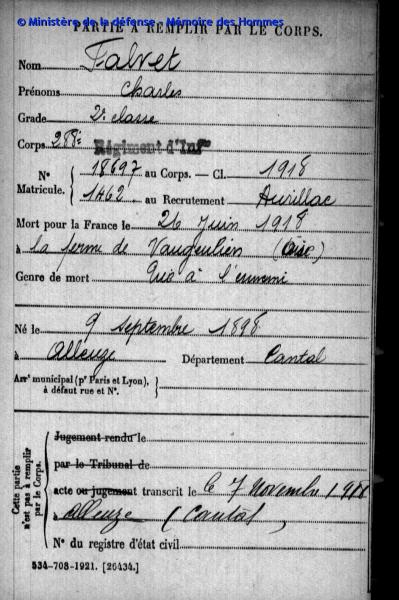 © Ministère de la défense - Mémoire des Hommes
PARTIE A REMPLIR PAR LE CORPS.
Nom Falvet
Prénoms Charles
Grade 2e classe
Corps 288e Régiment d'Infie
N° 18697 au Corps. — Cl. 1918
Matricule. 1462 au Recrutement Aurillac
Mort pour la France le 26 Juin 1918
à la ferme de (Oise)
Genre de mort Tué à l'ennemi
Né le 9 septembre 1898
à Alleuze Département Cantal
Arrt municipal (pr Paris et Lyon),
à défaut rue et N°.
Cette partie
n'est pas à remplir
par le Corps.
Jugement rendu le
par le Tribunal de
acte ou jugement transcrit le le 7 Novembre 1918
à Alleuze (Cantal)
N° du registre d'état civil
534-708-1921. [26434.]